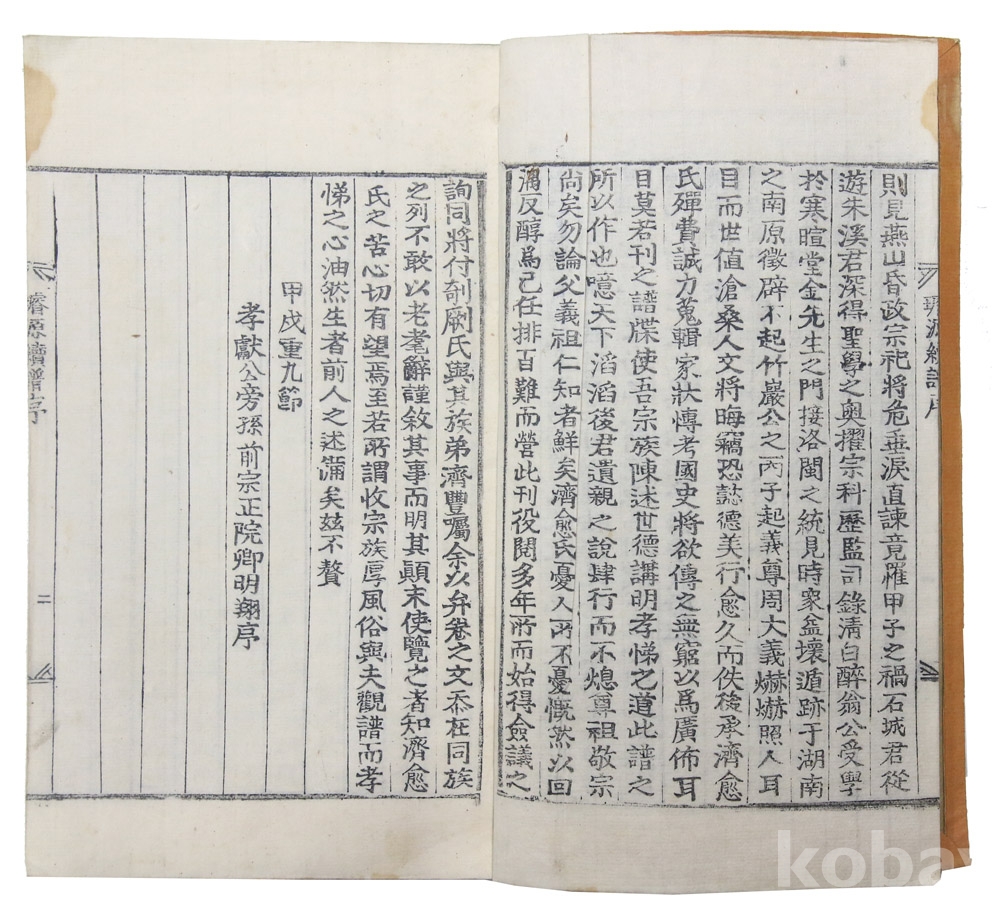 則見燕山昏政宗祀將危垂淚直諫竟罹甲子之禍石城君從
遊朱溪君深得聖學之奧擢宗科歷監司錄清白醉翁公受學
於寒暄堂金先生之門接洛閩之統見時象益壞遁跡于湖南
之南原徵辟不起竹巖公之丙子起義尊周大義爀爀照人耳
目而世值滄桑人文將晦竊恐懿德美行愈久而佚後承濟愈
氏殫費誠力蒐輯家狀傳考國史將欲傳之無窮以爲廣佈耳
目莫若刊之譜牒使吾宗族陳述世德講明孝悌之道此譜之
所以作也噫天下滔滔後君遺親之說肆行而不熄尊祖敬宗
尙矣勿論父義祖仁知者鮮矣濟愈氏憂人所不憂慨然以回
漓反醇爲己任排百難而營此刊役閱多年所而始得僉議之
詢同將付剞劂氏與其族弟濟豐囑余以弁卷之文忝在同族
之列不敢以老耄辭謹敘其事而明其顚末使覽之者知濟愈
氏之苦心切有望焉至若所謂收宗族厚風俗與夫觀譜而孝
悌之心油然生者前人之述備矣玆不贅
甲戌重九節
孝獻公旁孫前宗正院卿明翔序
璿源續譜序
二
kobay